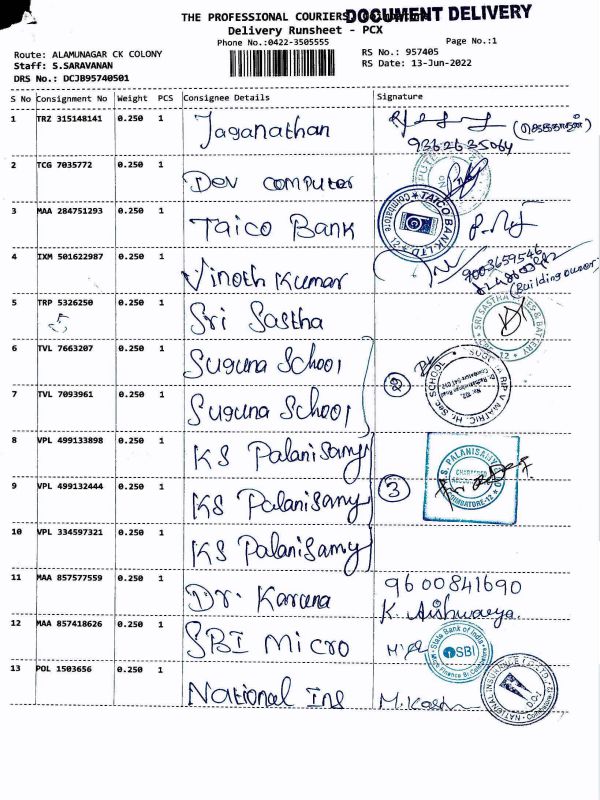 THE PROFESSIONAL COURIERS, Coimbatore
DOCUMENT DELIVERY
Delivery Runsheet - PCX
Phone No.:0422-3505555
Page No.:1
Route: ALAMUNAGAR CK COLONY
RS No.: 957405
Staff: S.SARAVANAN
RS Date: 13-Jun-2022
DRS No.: DCJB95740501
S No Consignment No Weight PCS Consignee Details Signature
1 TRZ 315148141 0.250 1 Jaganathan
9362635064
2 TCG 7035772 0.250 1 Dev computer
3 MAA 284751293 0.250 1 Taico Bank
TAICO BANK LTD
Coimbatore
4 IXM 501622987 0.250 1 Vinoth Kumar
9003659546
(Building owner)
5 TRP 5326250 0.250 1 Sri Sastha
5
SRI SASTHA & BATTERY
6 TVL 7663207 0.250 1 Suguna School
7 TVL 7093961 0.250 1 Suguna School
2
MATRIC. Hr. Sec. SCHOOL
8 VPL 499133898 0.250 1 KS Palanisamy
9 VPL 499132444 0.250 1 KS Palanisamy
3
S. PALANISAMY
CHARTERED
ACCOUNTANT
COIMBATORE-12
10 VPL 334597321 0.250 1 KS Palanisamy
11 MAA 857577559 0.250 1 Dr. Karuna
9600841690
K. Aishwarya.
12 MAA 857418626 0.250 1 SBI Micro
State Bank of India
SBI
13 POL 1503656 0.250 1 National Ins
NATIONAL INSURANCE